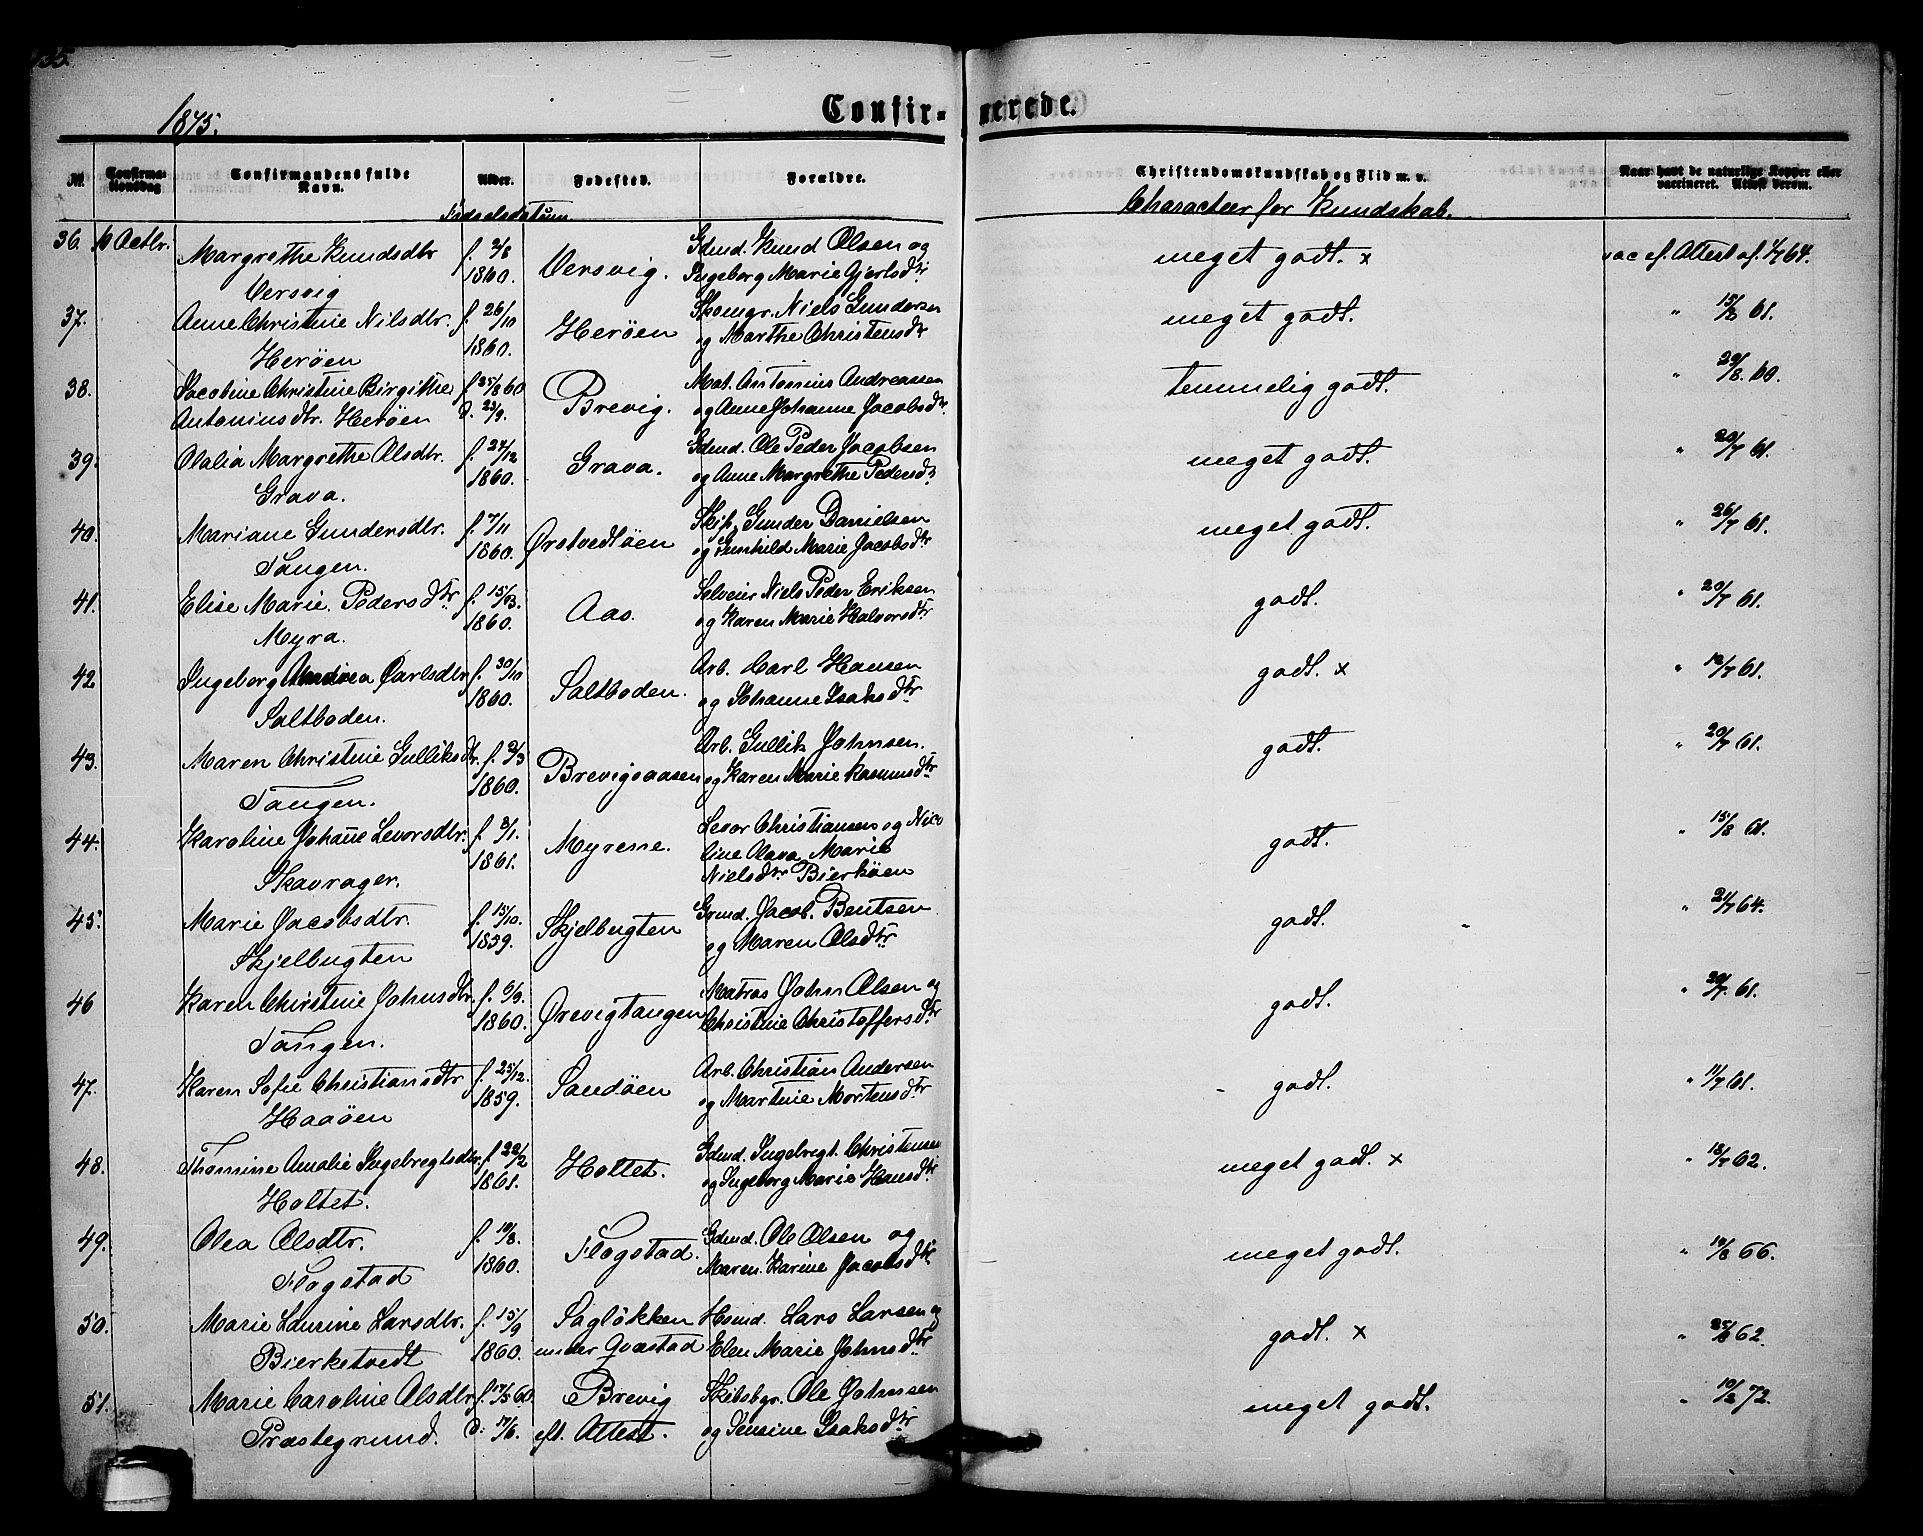 1875.
Confir-
merede.
№
Confirmationsdag
Confirmandens fulde Navn.
Alder.
Fødested.
Forældre.
Christendomskundskab og Flid m. v.
Naar havt de naturlige Kopper eller vaccineret. Attest derom.
Fødselsdatum
Character for Kundskab.
36. 10 Octbr. Margrethe Knudsdtr f. 2/8 Versvig. Gdmd. Knud Olsen og meget godt. x vac ef. Attest af. 1/7 64.
Versvig 1860. Ingeborg Marie Gjertsdtr
37. Anne Christine Nilsdtr. f. 26/10 Herøen Skomgr. Niels Gundersen meget godt. " 15/8 61.
Herøen 1860. og Marthe Christensdtr
38. Jacobine Christine Birgithe f. 25/8 60 Brevig. Mat. Antonius Andreassen temmelig godt. " 29/8. 60.
Antoniusdtr. Herøen d. 23/9. og Anne Johanne Jacobsdtr.
39. Olalia Margrethe Olsdtr. f. 24/12 Grava. Gdmd. Ole Peder Jacobsen meget godt. " 20/7 61.
Grava. 1860. og Anne Margrethe Pedersdtr
40. Mariane Gundersdtr. f. 7/11 Ørstvedtøen Skip. Gunder Danielsen meget godt. " 26/7 61.
Tangen. 1860. og Gunhild Marie Jacobsdtr
41. Elise Marie Pedersdtr f. 15/3. Aas. Selveier Niels Peder Eriksen godt. " 20/7 61.
Myra. 1860. og Karen Marie Halvorsdtr
42. Ingeborg Andrea Carlsdtr f. 30/10 Saltboden. Arb. Carl Hansen godt. x " 19/7 61.
Saltboden. 1860. og Johanne Isaksdtr
43. Maren Christine Gulliksdtr. f. 2/3 Brevigsaasen Arb. Gullik Johnsen. godt. " 20/7 61.
Tangen. 1860. og Karen Marie Rasmusdtr
44. Karoline Johanne Levorsdtr. f. 8/1. Myrene. Levor Christiansen og Nico godt. " 15/8 61.
Skavrager. 1861. line Olava Marie
Nielsdtr Bierkøen
45. Marie Jacobsdtr. f. 15/10. Skjelbugten Grund. Jacob. Bentsen godt. " 21/7 64.
Skjelbugten 1859. og Maren Olsdtr
46 Karen Christine Johnsdtr. f. 6/9. Ørevigtangen Matros John Olsen og godt. " 20/7. 61.
Tangen. 1860. Christine Christoffersdtr
47. Karen Sofie Christiansdtr f. 25/12. Sandøen Arb. Christian Andersen godt. " 11/7 61.
Haaøen 1859. og Martine Mortensdtr
48. Thomine Amalie Ingebregtsdtr. f. 22/2 Holtet. Gdmd. Ingebregt. Christensen meget godt. x " 18/7 62.
Holtet. 1861. og Ingeborg Marie Hansdtr
49. Olea Olsdtr. f. 10/8. Flogstad. Gdmd. Ole Olsen og meget godt. " 19/8 66.
Flogstad 1860. Maren Karine Jacobsdtr
50. Marie Laurine Larsdtr. f. 15/9 Sagløkken Hsmd. Lars Larsen og godt. x " 25/8 62.
Bierketvedt 1860. under Qvæstad Elen Marie Johnsdtr
51. Marie Caroline Olsdtr f. 17/5 60. Brevig Skibsbgr. Ole Johnsen meget godt. " 10/2 72.
Præstegrund. d. 17/6. eft. Attest. og Jensine Isaksdtr